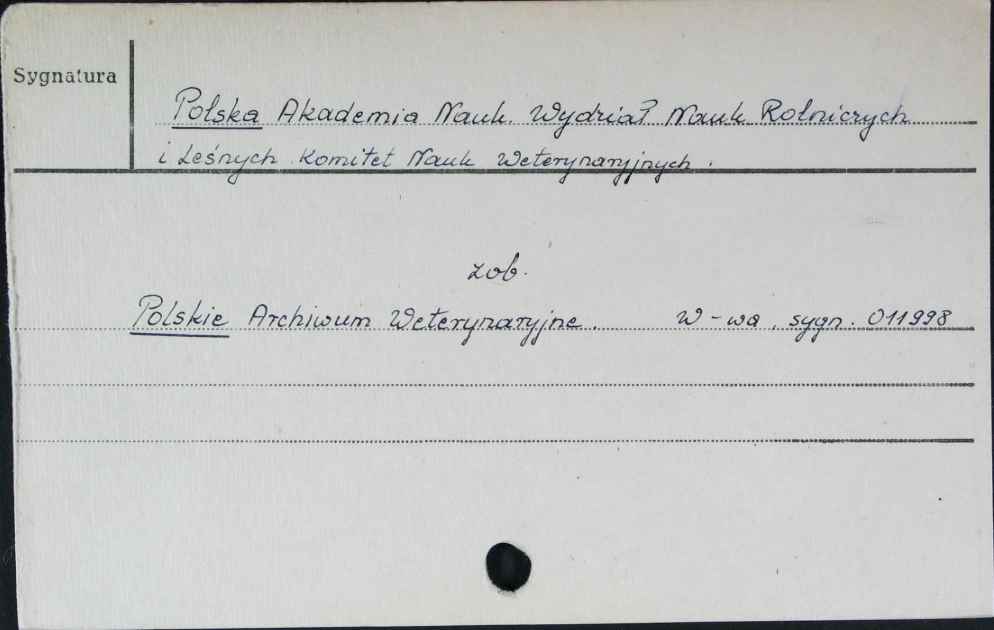 Sygnatura
Polska Akademia Nauk. Wydział Nauk Rolniczych
i Leśnych. Komitet Nauk Weterynaryjnych.
zob.
Polskie Archiwum Weterynaryjne. W-wa, sygn. 011998